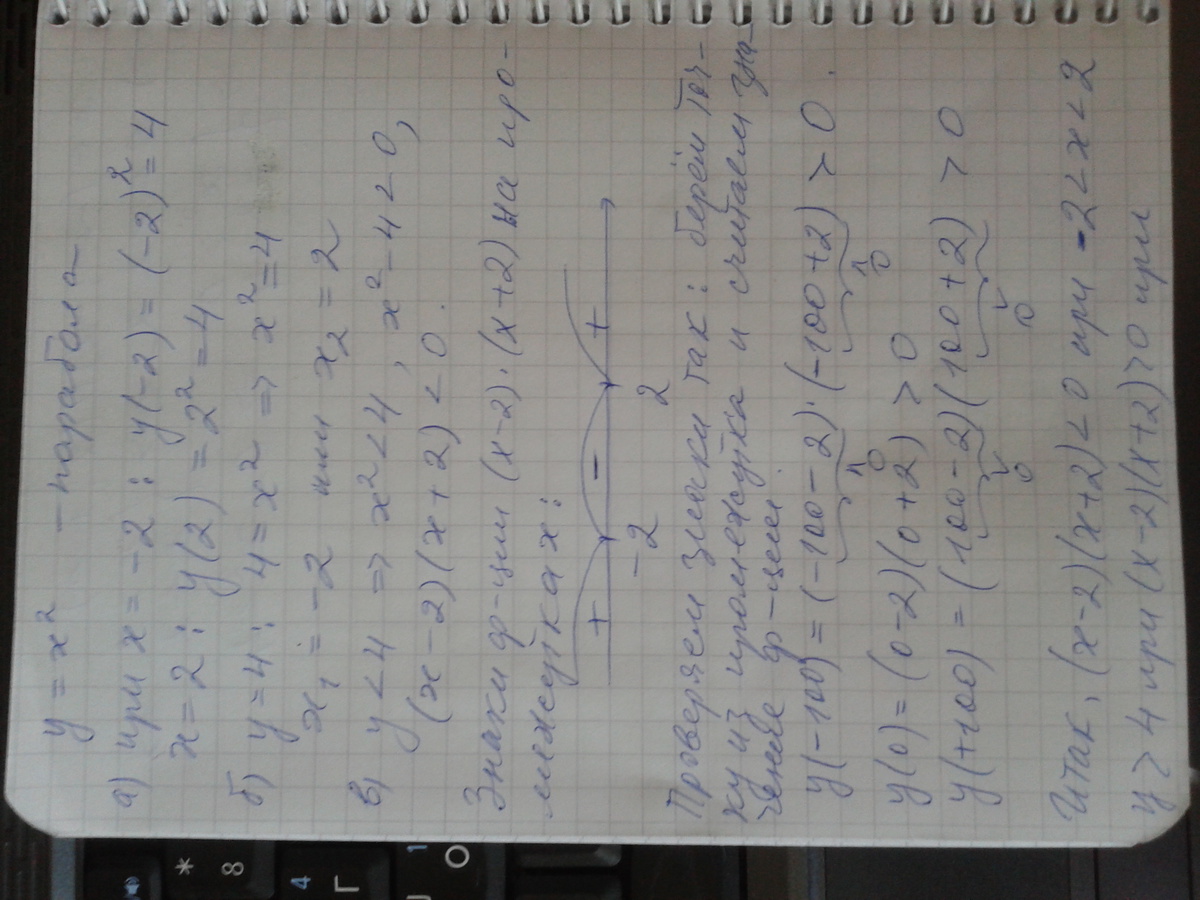 y = x² – парабола
а) при x = -2 : y(-2) = (-2)² = 4
x = 2 : y(2) = 2² = 4
б) y = 4 : 4 = x² => x² = 4
x₁ = -2 или x₂ = 2
в) y < 4 => x² < 4 , x² - 4 < 0,
(x - 2)(x + 2) < 0.
Знаки ф-ции (x-2)·(x+2) на про-
межутках:
+ - +
-2 2
Проверяем значки так : берём точ-
ку из промежутка и считаем зна-
чение ф-ции
y(-100) = (-100 - 2)·(-100 + 2) > 0.
^ 0 ^ 0
y(0) = (0 - 2)(0 + 2) > 0
y(+100) = (100 - 2)(100 + 2) > 0
v 0 v 0
Итак, (x-2)(x+2) < 0 при -2 < x < 2
y > 4 при (x-2)(x+2) > 0 при
* 8
4 Г
1 О